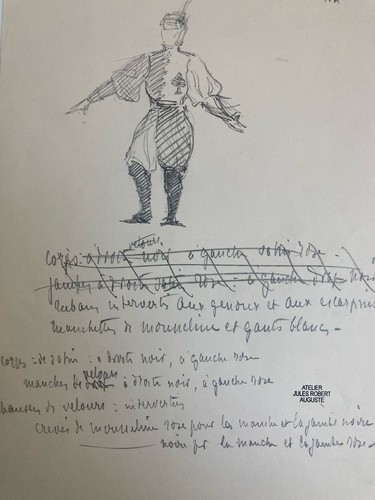 velours
corps: à droite noir à gauche satin rose
jambes à droite satin rose - à gauche drap noir
rubans intervertis aux genoux et aux escarpins
manchettes de mousseline et gants blancs -
corps: de satin: à droite noir, à gauche rose
velours
manches de à droite noir, à gauche rose
chausses de velours: interverties
crevés de mousseline rose pour la manche et la jambe noire
noire pr la manche et la jambe rose -
ATELIER
JULES ROBERT
AUGUSTE